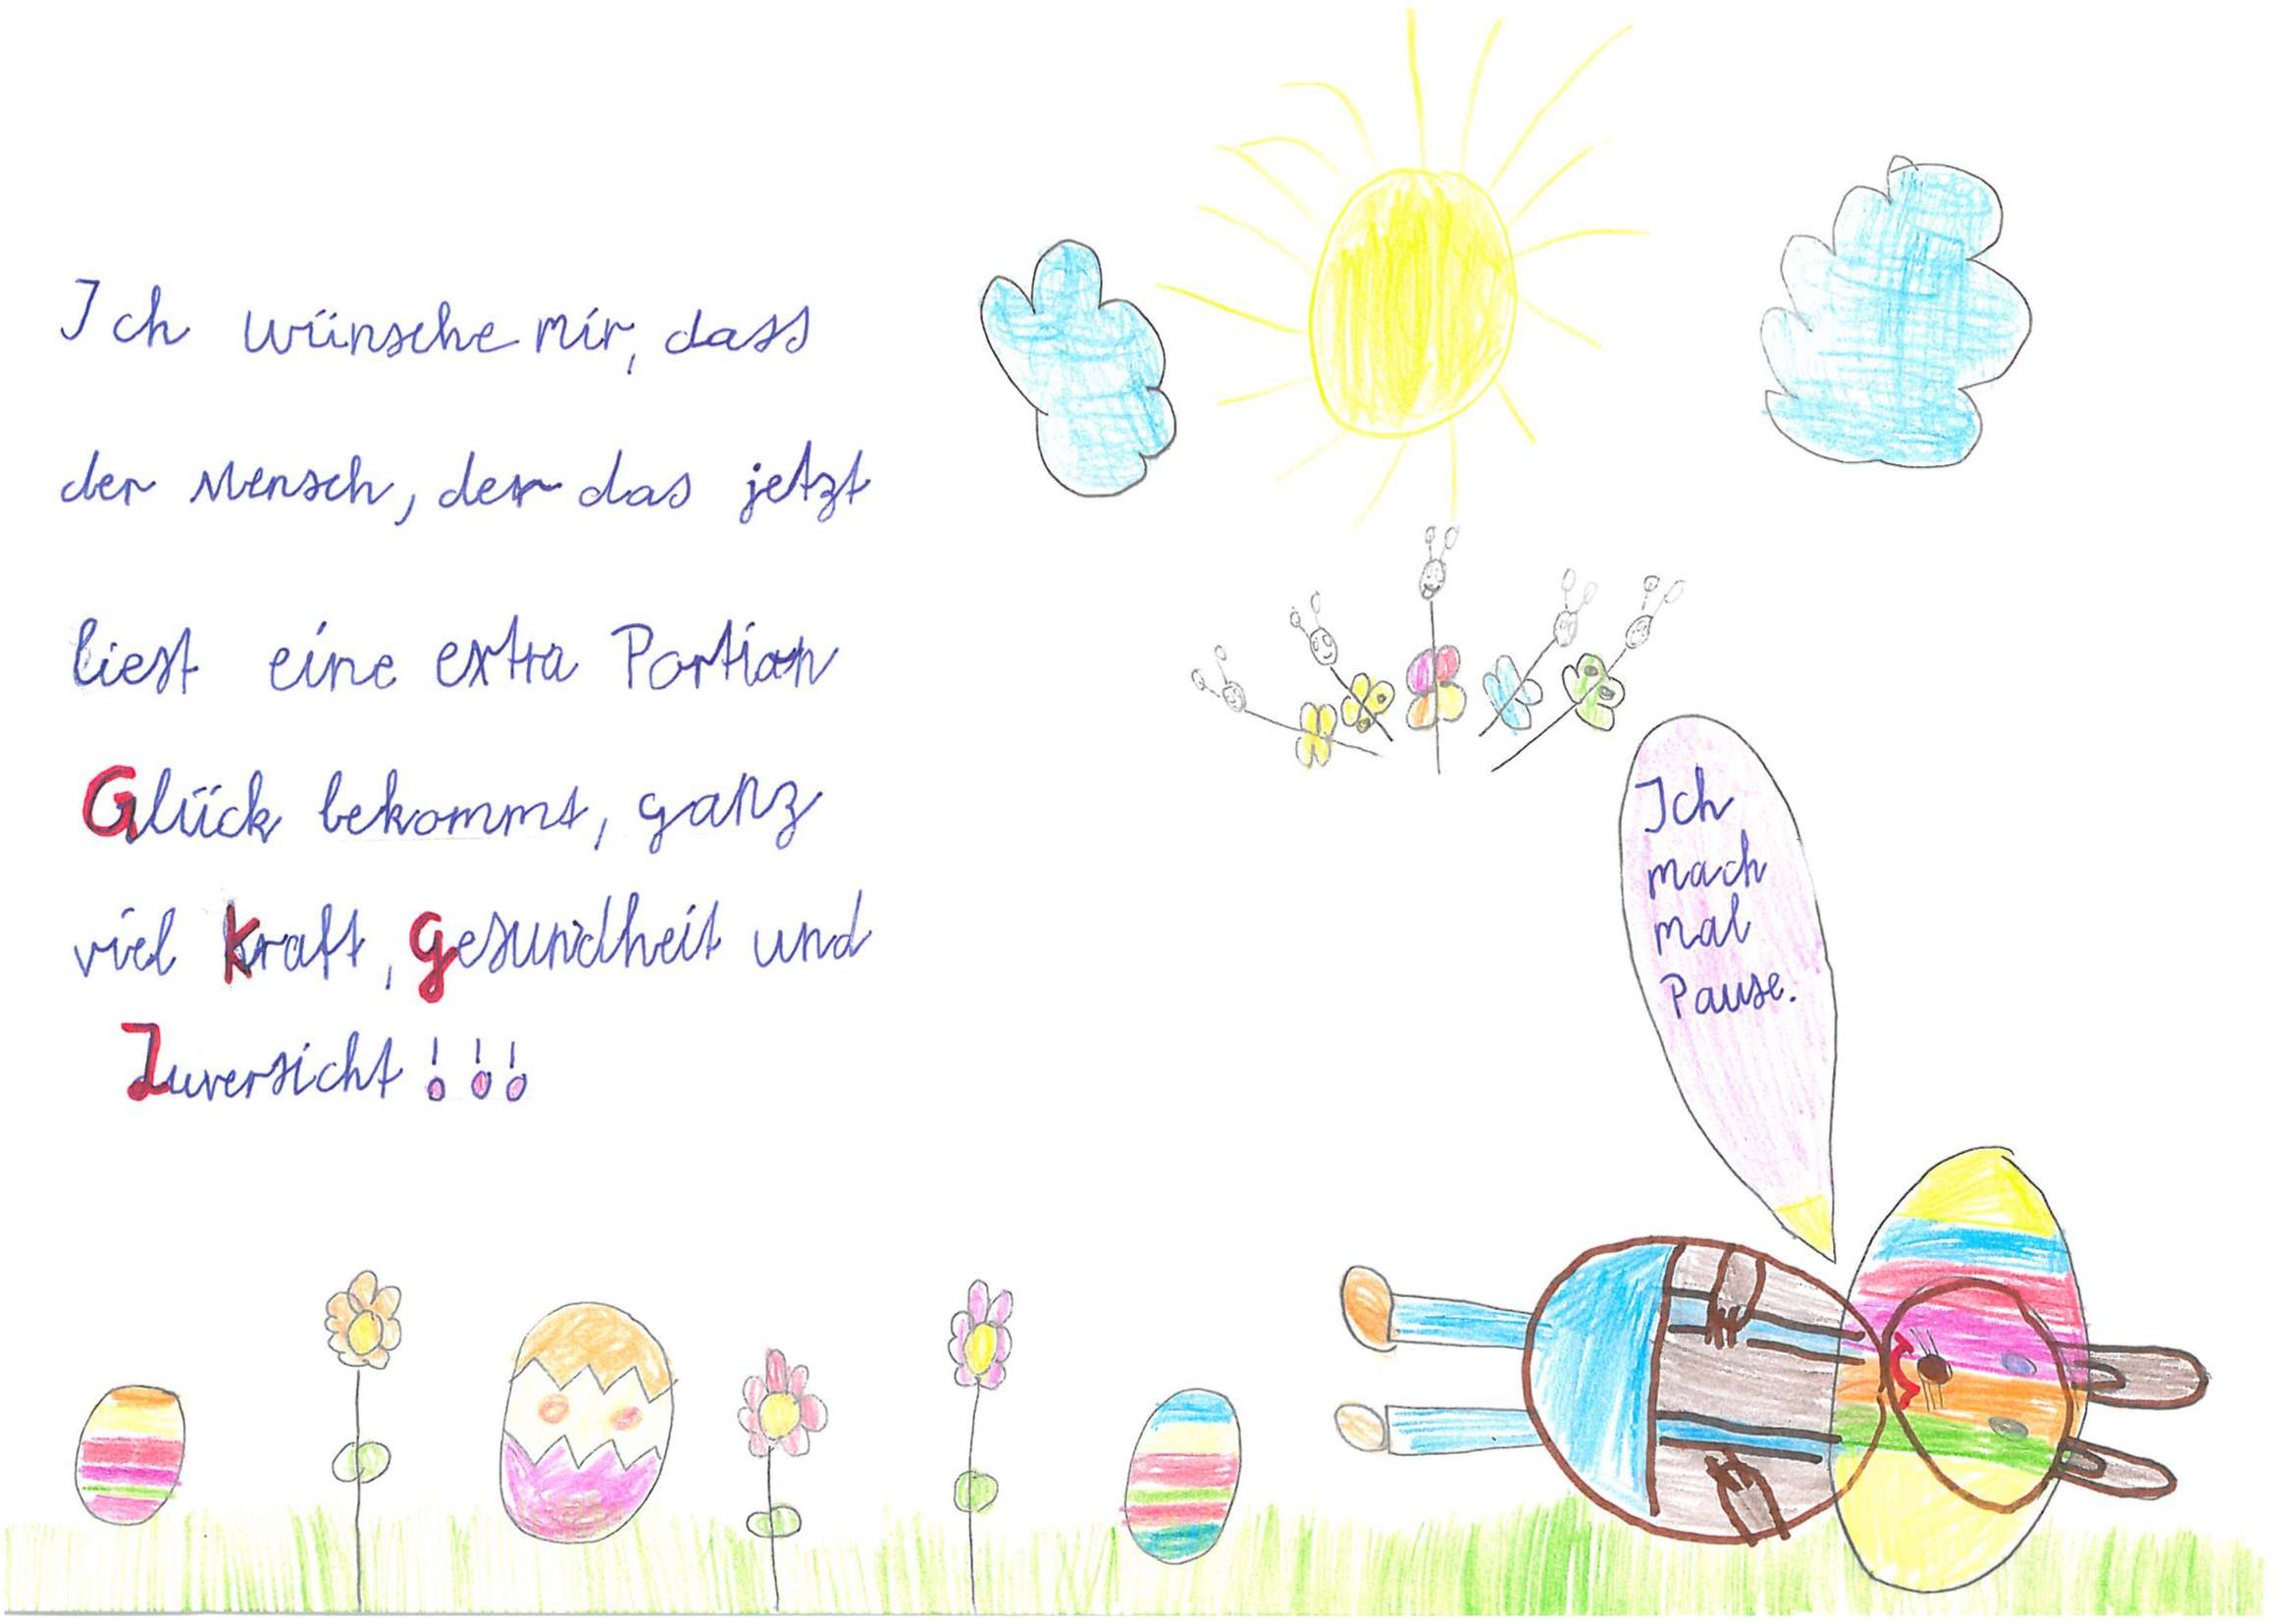 Ich wünsche mir, dass
der Mensch, der das jetzt
liest eine extra Portion
Glück bekommt, ganz
viel Kraft, Gesundheit und
Zuversicht!!!
Ich
mach
mal
Pause.